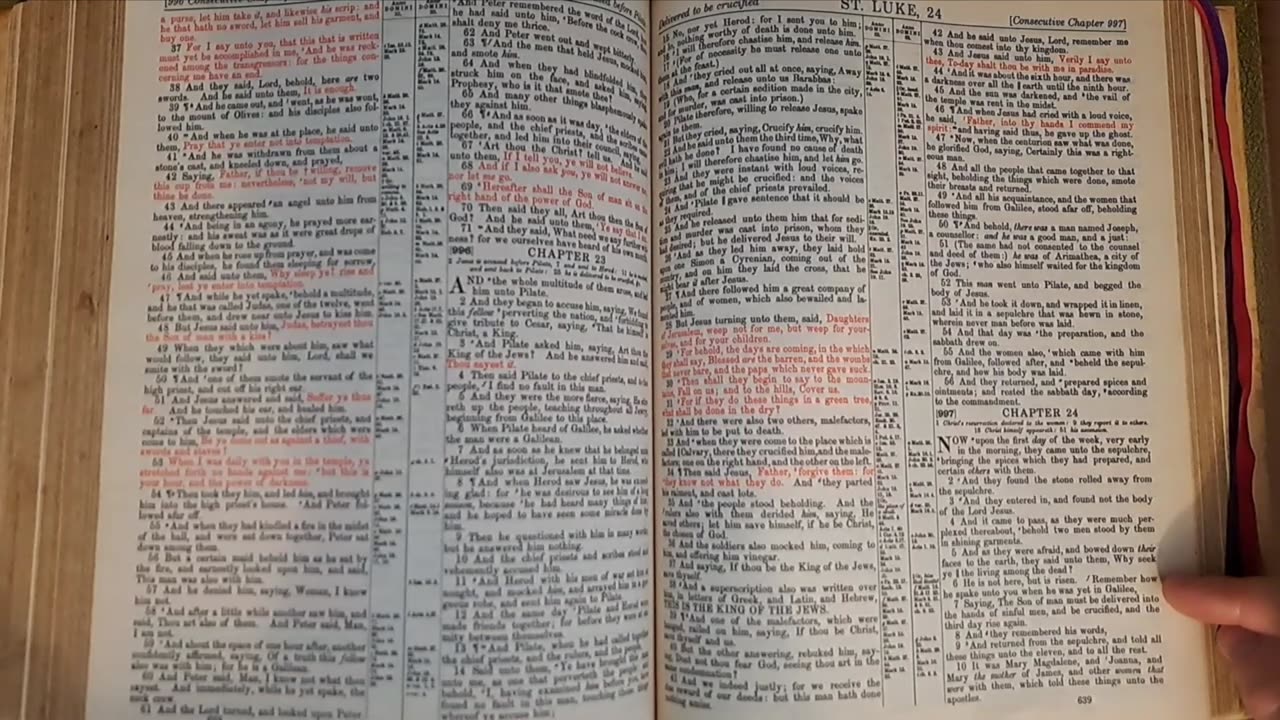 ST. LUKE, 24
Delivered to be crucified
[Consecutive Chapter 997]
a purse, let him take it, and likewise his scrip: and
he that hath no sword, let him sell his garment, and
buy one.
37 For I say unto you, that this that is written
must yet be accomplished in me, And he was reck-
oned among the transgressors: for the things con-
cerning me have an end.
38 And they said, Lord, behold, here are two
swords. And he said unto them, It is enough.
39 ¶ And he came out, and went, as he was wont,
to the mount of Olives: and his disciples also fol-
lowed him.
40 And when he was at the place, he said unto
them, Pray that ye enter not into temptation.
41 And he was withdrawn from them about a
stone's cast, and kneeled down, and prayed,
42 Saying, Father, if thou be willing, remove
this cup from me: nevertheless, not my will, but
thine be done.
43 And there appeared an angel unto him from
heaven, strengthening him.
44 And being in an agony, he prayed more ear-
nestly: and his sweat was as it were great drops of
blood falling down to the ground.
45 And when he rose up from prayer, and was come
to his disciples, he found them sleeping for sorrow,
46 And said unto them, Why sleep ye? rise and
pray, lest ye enter into temptation.
47 ¶ And while he yet spake, behold a multitude,
and he that was called Judas, one of the twelve, went
before them, and drew near unto Jesus to kiss him.
48 But Jesus said unto him, Judas, betrayest thou
the Son of man with a kiss?
49 When they which were about him, saw what
would follow, they said unto him, Lord, shall we
smite with the sword?
50 ¶ And one of them smote the servant of the
high priest, and cut off his right ear.
51 And Jesus answered and said, Suffer ye thus
far. And he touched his ear, and healed him.
52 Then Jesus said unto the chief priests, and
captains of the temple, and the elders which were
come to him, Be ye come out as against a thief, with
swords and staves?
53 When I was daily with you in the temple, ye
stretched forth no hands against me: but this is
your hour, and the power of darkness.
54 ¶ Then took they him, and led him, and brought
him into the high priest's house. And Peter fol-
lowed afar off.
55 And when they had kindled a fire in the midst
of the hall, and were set down together, Peter sat
down among them.
56 But a certain maid beheld him as he sat by
the fire, and earnestly looked upon him, and said,
This man was also with him.
57 And he denied him, saying, Woman, I know
him not.
58 And after a little while another saw him, and
said, Thou art also of them. And Peter said, Man,
I am not.
59 And about the space of one hour after, another
confidently affirmed, saying, Of a truth this fellow
also was with him; for he is a Galilean.
60 And Peter said, Man, I know not what thou
sayest. And immediately, while he yet spake, the
cock crew.
61 And the Lord turned, and looked upon Peter
And Peter remembered the word of the Lord,
he had said unto him, Before the cock crow,
shalt deny me thrice.
62 And Peter went out and wept bitterly.
63 ¶ And the men that held Jesus, mocked him
and smote him.
64 And when they had blindfolded him, they
struck him on the face, and asked him, saying
Prophesy, who is it that smote thee?
65 And many other things blasphemously spake
they against him.
66 ¶ And as soon as it was day, the elders of the
people, and the chief priests, and the scribes
together, and led him into their council, saying
67 Art thou the Christ? tell us. And he said
unto them, If I tell you, ye will not believe.
68 And if I also ask you, ye will not answer me,
nor let me go.
69 Hereafter shall the Son of man sit on the
right hand of the power of God.
70 Then said they all, Art thou then the Son of
God? And he said unto them, Ye say that I
71 And they said, What need we any further
ness? for we ourselves have heard of his own mouth.
[996] CHAPTER 23
1 Jesus is accused before Pilate, 7 and sent to Herod:
and sent back to Pilate:
AND the whole multitude of them arose, and led
him unto Pilate.
2 And they began to accuse him, saying, We found
this fellow perverting the nation, and forbidding to
give tribute to Cesar, saying, That he himself is
Christ, a King.
3 And Pilate asked him, saying, Art thou the
King of the Jews? And he answered him and said,
Thou sayest it.
4 Then said Pilate to the chief priests, and to the
people, I find no fault in this man.
5 And they were the more fierce, saying, He stir-
reth up the people, teaching throughout all Jewry,
beginning from Galilee to this place.
6 When Pilate heard of Galilee, he asked whether
the man were a Galilean.
7 And as soon as he knew that he belonged unto
Herod's jurisdiction, he sent him to Herod, who
himself also was at Jerusalem at that time.
8 ¶ And when Herod saw Jesus, he was exceed-
ing glad: for he was desirous to see him of a long
season, because he had heard many things of him;
and he hoped to have seen some miracle done by
him.
9 Then he questioned with him in many words;
but he answered him nothing.
10 And the chief priests and scribes stood and
vehemently accused him.
11 And Herod with his men of war set him at
nought, and mocked him, and arrayed him in a gor-
geous robe, and sent him again to Pilate.
12 And the same day Pilate and Herod were
made friends together; for before they were at en-
mity between themselves.
13 ¶ And Pilate, when he had called together
the chief priests, and the rulers, and the people,
14 Said unto them, Ye have brought this man
unto me, as one that perverteth the people:
behold, I, having examined him before you, have
found no fault in this man, touching those things
whereof ye accuse him;
15 No, nor yet Herod: for I sent you to him;
lo, nothing worthy of death is done unto him.
16 I will therefore chastise him, and release him.
17 (For of necessity he must release one unto
them at the feast.)
18 And they cried out all at once, saying, Away
with this man, and release unto us Barabbas:
19 (Who, for a certain sedition made in the city,
for murder, was cast into prison.)
20 Pilate therefore, willing to release Jesus, spake
again to them.
21 But they cried, saying, Crucify him, crucify him.
22 And he said unto them the third time, Why, what
evil hath he done? I have found no cause of death
in him; I will therefore chastise him, and let him go.
23 And they were instant with loud voices, re-
quiring that he might be crucified: and the voices
of them, and of the chief priests prevailed.
24 And Pilate gave sentence that it should be
as they required.
25 And he released unto them him that for sedi-
tion and murder was cast into prison, whom they
had desired; but he delivered Jesus to their will.
26 And as they led him away, they laid hold
upon one Simon a Cyrenian, coming out of the
country, and on him they laid the cross, that he
might bear it after Jesus.
27 ¶ And there followed him a great company of
people, and of women, which also bewailed and la-
mented him.
28 But Jesus turning unto them, said, Daughters
of Jerusalem, weep not for me, but weep for your-
selves, and for your children.
29 For behold, the days are coming, in the which
they shall say, Blessed are the barren, and the wombs
that never bare, and the paps which never gave suck.
30 Then shall they begin to say to the moun-
tains, Fall on us; and to the hills, Cover us.
31 For if they do these things in a green tree,
what shall be done in the dry?
32 And there were also two others, malefactors,
led with him to be put to death.
33 And when they were come to the place which is
called Calvary, there they crucified him, and the male-
factors; one on the right hand, and the other on the left.
34 ¶ Then said Jesus, Father, forgive them: for
they know not what they do. And they parted
his raiment, and cast lots.
35 And the people stood beholding. And the
rulers also with them derided him, saying, He
saved others; let him save himself, if he be Christ,
the chosen of God.
36 And the soldiers also mocked him, coming to
him, and offering him vinegar.
37 And saying, If thou be the King of the Jews,
save thyself.
38 And a superscription also was written over
him, in letters of Greek, and Latin, and Hebrew,
THIS IS THE KING OF THE JEWS.
39 ¶ And one of the malefactors, which were
hanged, railed on him, saying, If thou be Christ,
save thyself and us.
40 But the other answering, rebuked him, say-
ing, Dost not thou fear God, seeing thou art in the
same condemnation?
41 And we indeed justly; for we receive the
due reward of our deeds: but this man hath done
nothing amiss.
42 And he said unto Jesus, Lord, remember me
when thou comest into thy kingdom.
43 And Jesus said unto him, Verily I say unto
thee, To-day shalt thou be with me in paradise.
44 And it was about the sixth hour, and there was
a darkness over all the earth until the ninth hour.
45 And the sun was darkened, and the vail of
the temple was rent in the midst.
46 ¶ And when Jesus had cried with a loud voice,
he said, Father, into thy hands I commend my
spirit: and having said thus, he gave up the ghost.
47 Now, when the centurion saw what was done,
he glorified God, saying, Certainly this was a right-
eous man.
48 And all the people that came together to that
sight, beholding the things which were done, smote
their breasts and returned.
49 And all his acquaintance, and the women that
followed him from Galilee, stood afar off, beholding
these things.
50 ¶ And behold, there was a man named Joseph,
a counsellor: and he was a good man, and a just:
51 (The same had not consented to the counsel
and deed of them:) he was of Arimathea, a city of
the Jews; who also himself waited for the kingdom
of God.
52 This man went unto Pilate, and begged the
body of Jesus.
53 And he took it down, and wrapped it in linen,
and laid it in a sepulchre that was hewn in stone,
wherein never man before was laid.
54 And that day was the preparation, and the
sabbath drew on.
55 And the women also, which came with him
from Galilee, followed after, and beheld the sepul-
chre, and how his body was laid.
56 And they returned, and prepared spices and
ointments; and rested the sabbath day, according
to the commandment.
[997] CHAPTER 24
1 Christ's resurrection declared to the women: 9 they report it to others.
13 Christ himself appeareth: 51 his ascension.
NOW upon the first day of the week, very early
in the morning, they came unto the sepulchre,
bringing the spices which they had prepared, and
certain others with them.
2 And they found the stone rolled away from
the sepulchre.
3 And they entered in, and found not the body
of the Lord Jesus.
4 And it came to pass, as they were much per-
plexed thereabout, behold two men stood by them
in shining garments.
5 And as they were afraid, and bowed down their
faces to the earth, they said unto them, Why seek
ye the living among the dead?
6 He is not here, but is risen. Remember how
he spake unto you when he was yet in Galilee,
7 Saying, The Son of man must be delivered into
the hands of sinful men, and be crucified, and the
third day rise again.
8 And they remembered his words,
9 And returned from the sepulchre, and told all
these things unto the eleven, and to all the rest.
10 It was Mary Magdalene, and Joanna, and
Mary the mother of James, and other women that
were with them, which told these things unto the
apostles.
639